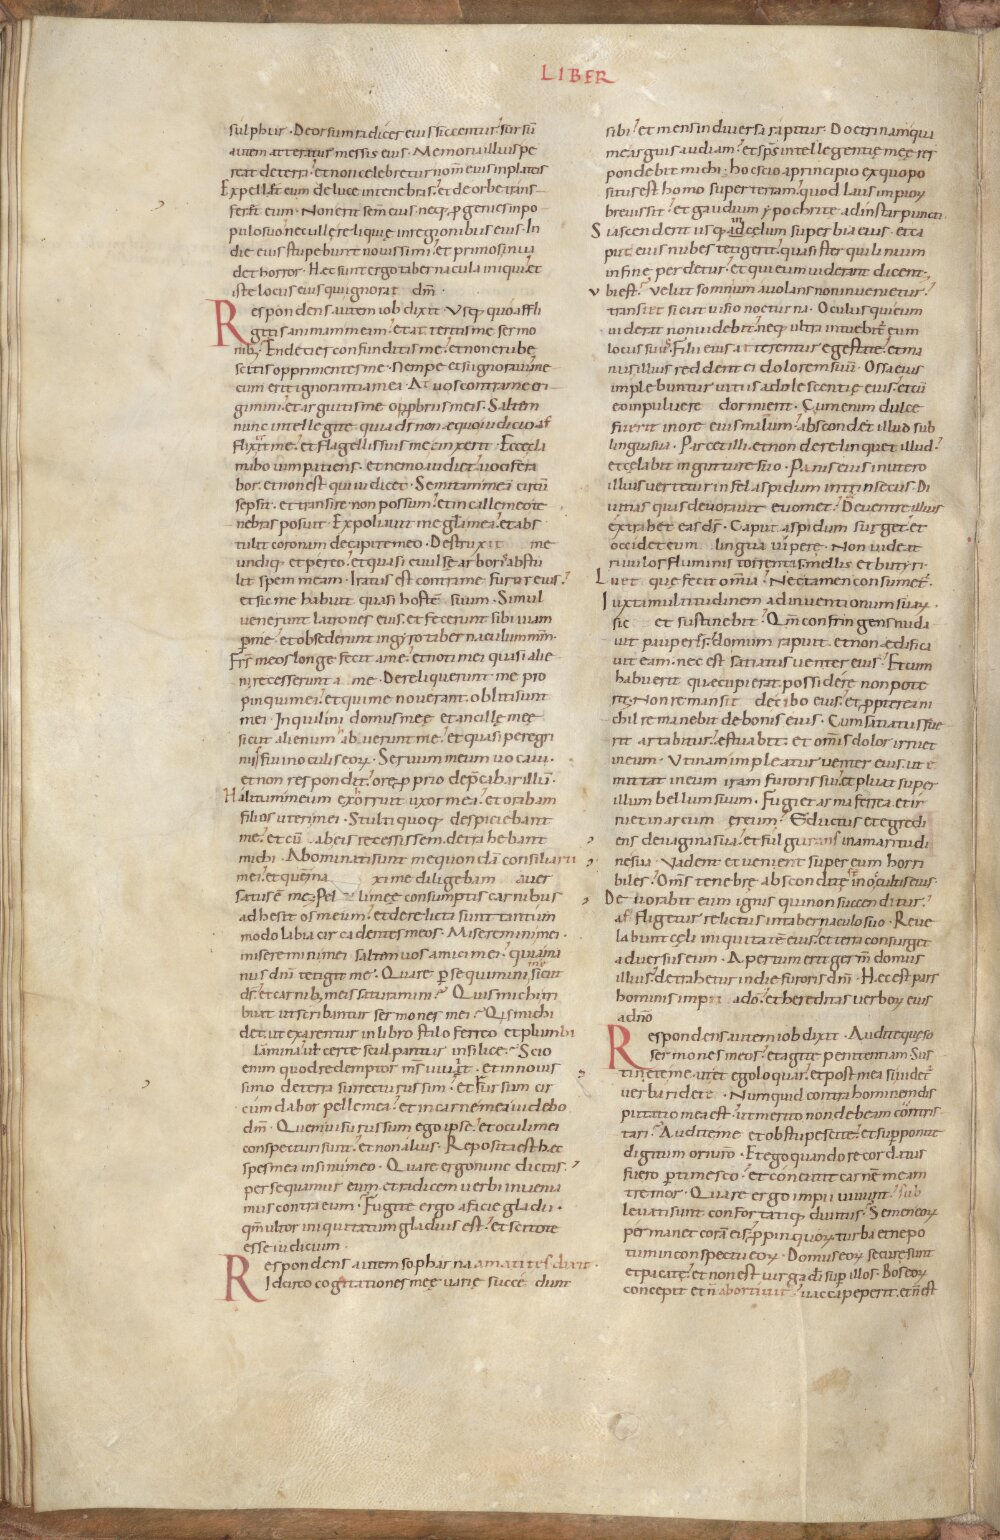 LIBER
sulphur · Deorsum radices eius siccentur sursū
autem atteratur messis eius · Memoria illius pe
reat de terra et non celebretur nom̄ eius in plateis
Expellet eum de luce in tenebras et de orbe trans
feret eum · Non erit sem̄ eius neq; ꝓgenies in po
pulo suo nec ullę reliquię in regionibus eius · In
die eius stupebunt nouissimi et primos inua
det horror · Hęc sunt ergo tabernacula iniqui et
iste locus eius qui ignorat dm̄ ·
Respondens autem iob dixit · Usq; quo affli
gitis animam meam et atteritis me sermo
nib; En decies confunditis me et non erube
scitis opprimentes me · Nempe et si ignoraui me
cum erit ignorantia mea · At uos contra me eri
gimini et arguitis me opprobriis meis · Saltem
nunc intellegite quia ds̄ non aequo iudicio af
flixit me et flagellis suis me cinxerit · Ecce cla
mabo uim patiens et nemo audiet uocifera
bor et non est qui iudicet · Semitam meā circū
sepsit et transire non possum et in calle meo te
nebras posuit · Expoliauit me gl̄a mea et abs
tulit coronam de capite meo · Destruxit me
undiq; et pereo et quasi euulsae arbori abstu
lit spem meam · Iratus est contra me furor eius
et sic me habuit quasi hostē suum · Simul
uenerunt latrones eius et fecerunt sibi uiam
per me et obsederunt in gyro tabernaculum m̄m ·
Fr̄s meos longe fecit a me et noti mei quasi alie
ni recesserunt a me · Dereliquerunt me pro
pinqui mei et qui me nouerant obliti sunt
mei · Inquilini domus meę et ancillę meę
sicut alienum habuerunt me et quasi peregri
nus fui in oculis eorum · Seruum meum uocaui
et non respondit ore ꝓprio dep̄cabar illū ·
Halitum meum exorruit uxor mea et orabam
filios uteri mei · Stulti quoq; despiciebant
me et cū ab eis recessissem detrahebant
michi · Abominati sunt me quondā consiliarii
mei et quem maxime diligebam auer
satus ē me Pelli meę consumptis carnibus
adhesit os meum et derelicta sunt tantum
modo labia circa dentes meos · Miseremini mei
miseremini mei saltem uos amici mei quia ma
nus dn̄i tetigit me · Quare persequimini me sicut
ds̄ et carnib; meis saturamini Quis michi tri
buat ut scribantur sermones mei Quis michi
det ut exarentur in libro stilo ferreo et plumbi
lamina uel certe sculpantur in silice Scio
enim quod redemptor m̄s uiuit et in nouis
simo de terra surrecturus sim et rursum cir
cumdabor pelle mea et in carne mea uidebo
dm̄ · Quem uisurus sum ego ipse et oculi mei
conspecturi sunt et non alius · Reposita est hęc
spes mea in sinu meo · Quare ergo nunc dicitis
persequamur eum et radicem uerbi inuenia
mus contra eum · Fugite ergo a facie gladii ·
qm̄ ultor iniquitatum gladius est et scitote
esse iudicium ·
Respondens autem sophar naamatites dixit ·
Idcirco cogitationes meę uarię succedunt
sibi et mens in diuersa rapitur · Doctrinam qua
me arguis audiam et sps̄ intellegentię meę res
pondebit michi · hoc scio a principio ex quo po
situs est homo super terram quod laus impiorum
breuis sit et gaudium ypochritę ad instar puncti
Si ascenderit usq; ad cęlum superbia eius et ca
put eius nubes tetigerit quasi sterquilinium
in fine perdetur et qui eum uiderant dicent
ubi est Velut somnium auolans non inuenietur
transiet sicut uisio nocturna · Oculus qui eum
uiderat non uidebit neq; ultra intuebit̄ eum
locus suus · Filii eius atterentur egestate et ma
nus illius reddent ei dolorem suū · Ossa eius
implebuntur uitiis adolescentię eius et cū
eo in puluere dormient · Cum enim dulce
fuerit in ore eius malum abscondet illud sub
lingua sua · Parcet illi et non derelinquet illud
et celabit in gutture suo · Panis eius in utero
illius uertetur in fel aspidum intrinsecus · Di
uitias quas deuorauit euomet Deuentre illius
extrahet eas ds̄ · Caput aspidum surget et
occidet eum lingua uiperę · Non uideat
riuulos fluminis torrentis mellis et butyri ·
Luet que fecit omīa · Nec tamen consumet̄ ·
Iuxta multitudinem adinuentionum suarum
sic et sustinebit Qm̄ confringens nuda
uit pauperis domum rapuit et non edifica
uit eam nec est satiatus uenter eius Et cum
habuerit que cupierat possidere non pote
rit · Non remansit de cibo eius et ꝓpterea ni
chil remanebit de bonis eius · Cum satiatus fue
rit artabitur estuabit et omīs dolor irruet
in eum · Utinam impleatur uenter eius ut e
mittat in eum iram furoris sui et pluat super
illum bellum suum · Fugiet arma ferrea et ir
ruet in arcum ereum Eductus et egredi
ens de uagina sua et fulgurans in amaritudi
ne sua Vadent et uenient super eum horri
biles Omīs tenebrę absconditę sunt in occultis eius
Deuorabit eum ignis qui non succenditur
affligetur relictus in tabernaculo suo · Reue
labunt cęli iniquitatē eius et terra consurget
aduersus eum · Apertum erit germ̄ domus
illius detrahetur in die furoris dn̄i · Hęc est pars
hominis impii a do et hereditas uerborum eius
a dn̄o
Respondens autem iob dixit · Audite quęso
sermones meos et agite penitentiam Sus
tinete me ut et ego loquar et post mea si uidet̄
uerba ridete · Numquid contra hominem dis
putatio mea est ut merito non debeam contris
tari · Audite me et obstupescite et superponite
digitum ori uro · Et ego quando recordatus
fuero pertimesco et concutit carnē meam
tremor · Quare ergo impii uiuunt sub
leuati sunt confortatiq; diuitiis Semen eorum
permanet corā eis ꝓpinquorum turba et nepo
tum in conspectu eorum · Domus eorum securę sunt
et pacatę et non est uirga di super illos · Bos eorum
concepit et n̄ abortiuit uacca peperit et n̄ est